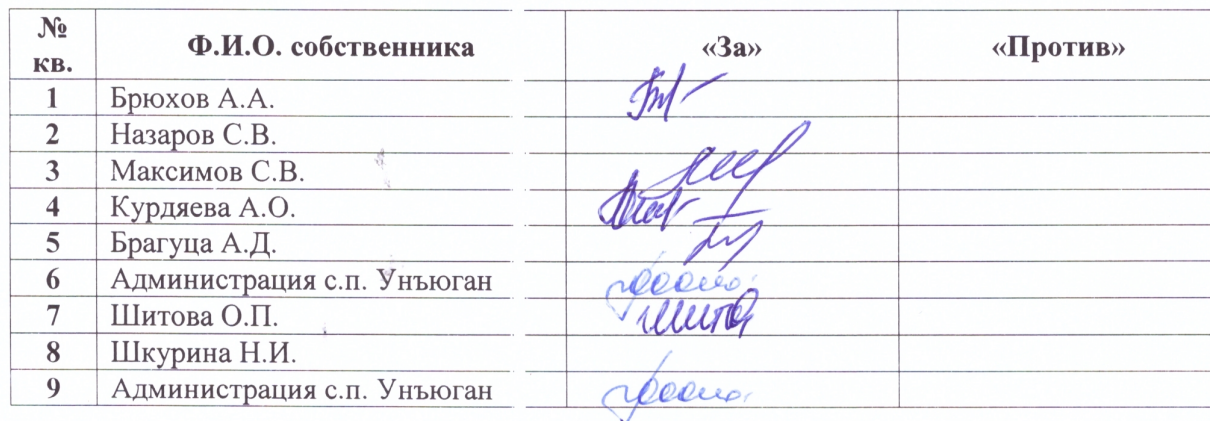 № кв. Ф.И.О. собственника «За» «Против»
1 Брюхов А.А.
2 Назаров С.В.
3 Максимов С.В.
4 Курдяева А.О.
5 Брагуца А.Д.
6 Администрация с.п. Унъюган
7 Шитова О.П.
8 Шкурина Н.И.
9 Администрация с.п. Унъюган